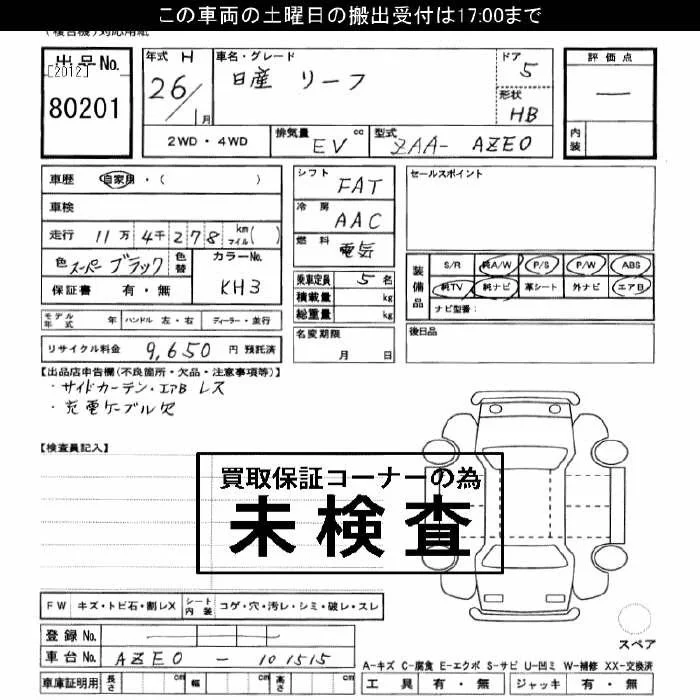 この車両の土曜日の搬出受付は17:00まで
(複合機)対応用紙
出品No. [2012] 80201
年式 H 26/1月
車名・グレード 日産 リーフ
ドア 5
形状 HB
評価点 —
内装
2WD・4WD
排気量 EV cc
型式 ZAA- AZE0
車歴 自家用・( )
車検
走行 11万4千278 km マイル( )
色 スーパーブラック 色替
カラーNo. KH3
保証書 有・無
モデル年式 年 ハンドル 左・右 ディーラー・並行
リサイクル料金 9,650 円 預託済
シフト FAT
冷房 AAC
燃料 電気
乗車定員 5 名
積載量 kg
総重量 kg
名変期限 月 日
セールスポイント
装備品 S/R 純A/W P/S P/W ABS
純TV 純ナビ 革シート 外ナビ エアB
ナビ型番:
後日品
【出品店申告欄(不良箇所・欠品・注意事項等)】
・サイドカーテン・エアB レス
・充電ケーブル欠
【検査員記入】
買取保証コーナーの為
未検査
FW キズ・トビ石・割レX シート内装 コゲ・穴・汚レ・シミ・破レ・スレ
登録No.
車台No. AZE0 - 101515
車庫証明用 長さ cm 幅 cm 高さ cm
スペア
A-キズ C-腐食 E-エクボ S-サビ U-凹ミ W-補修 XX-交換済
工具 有・無 ジャッキ 有・無